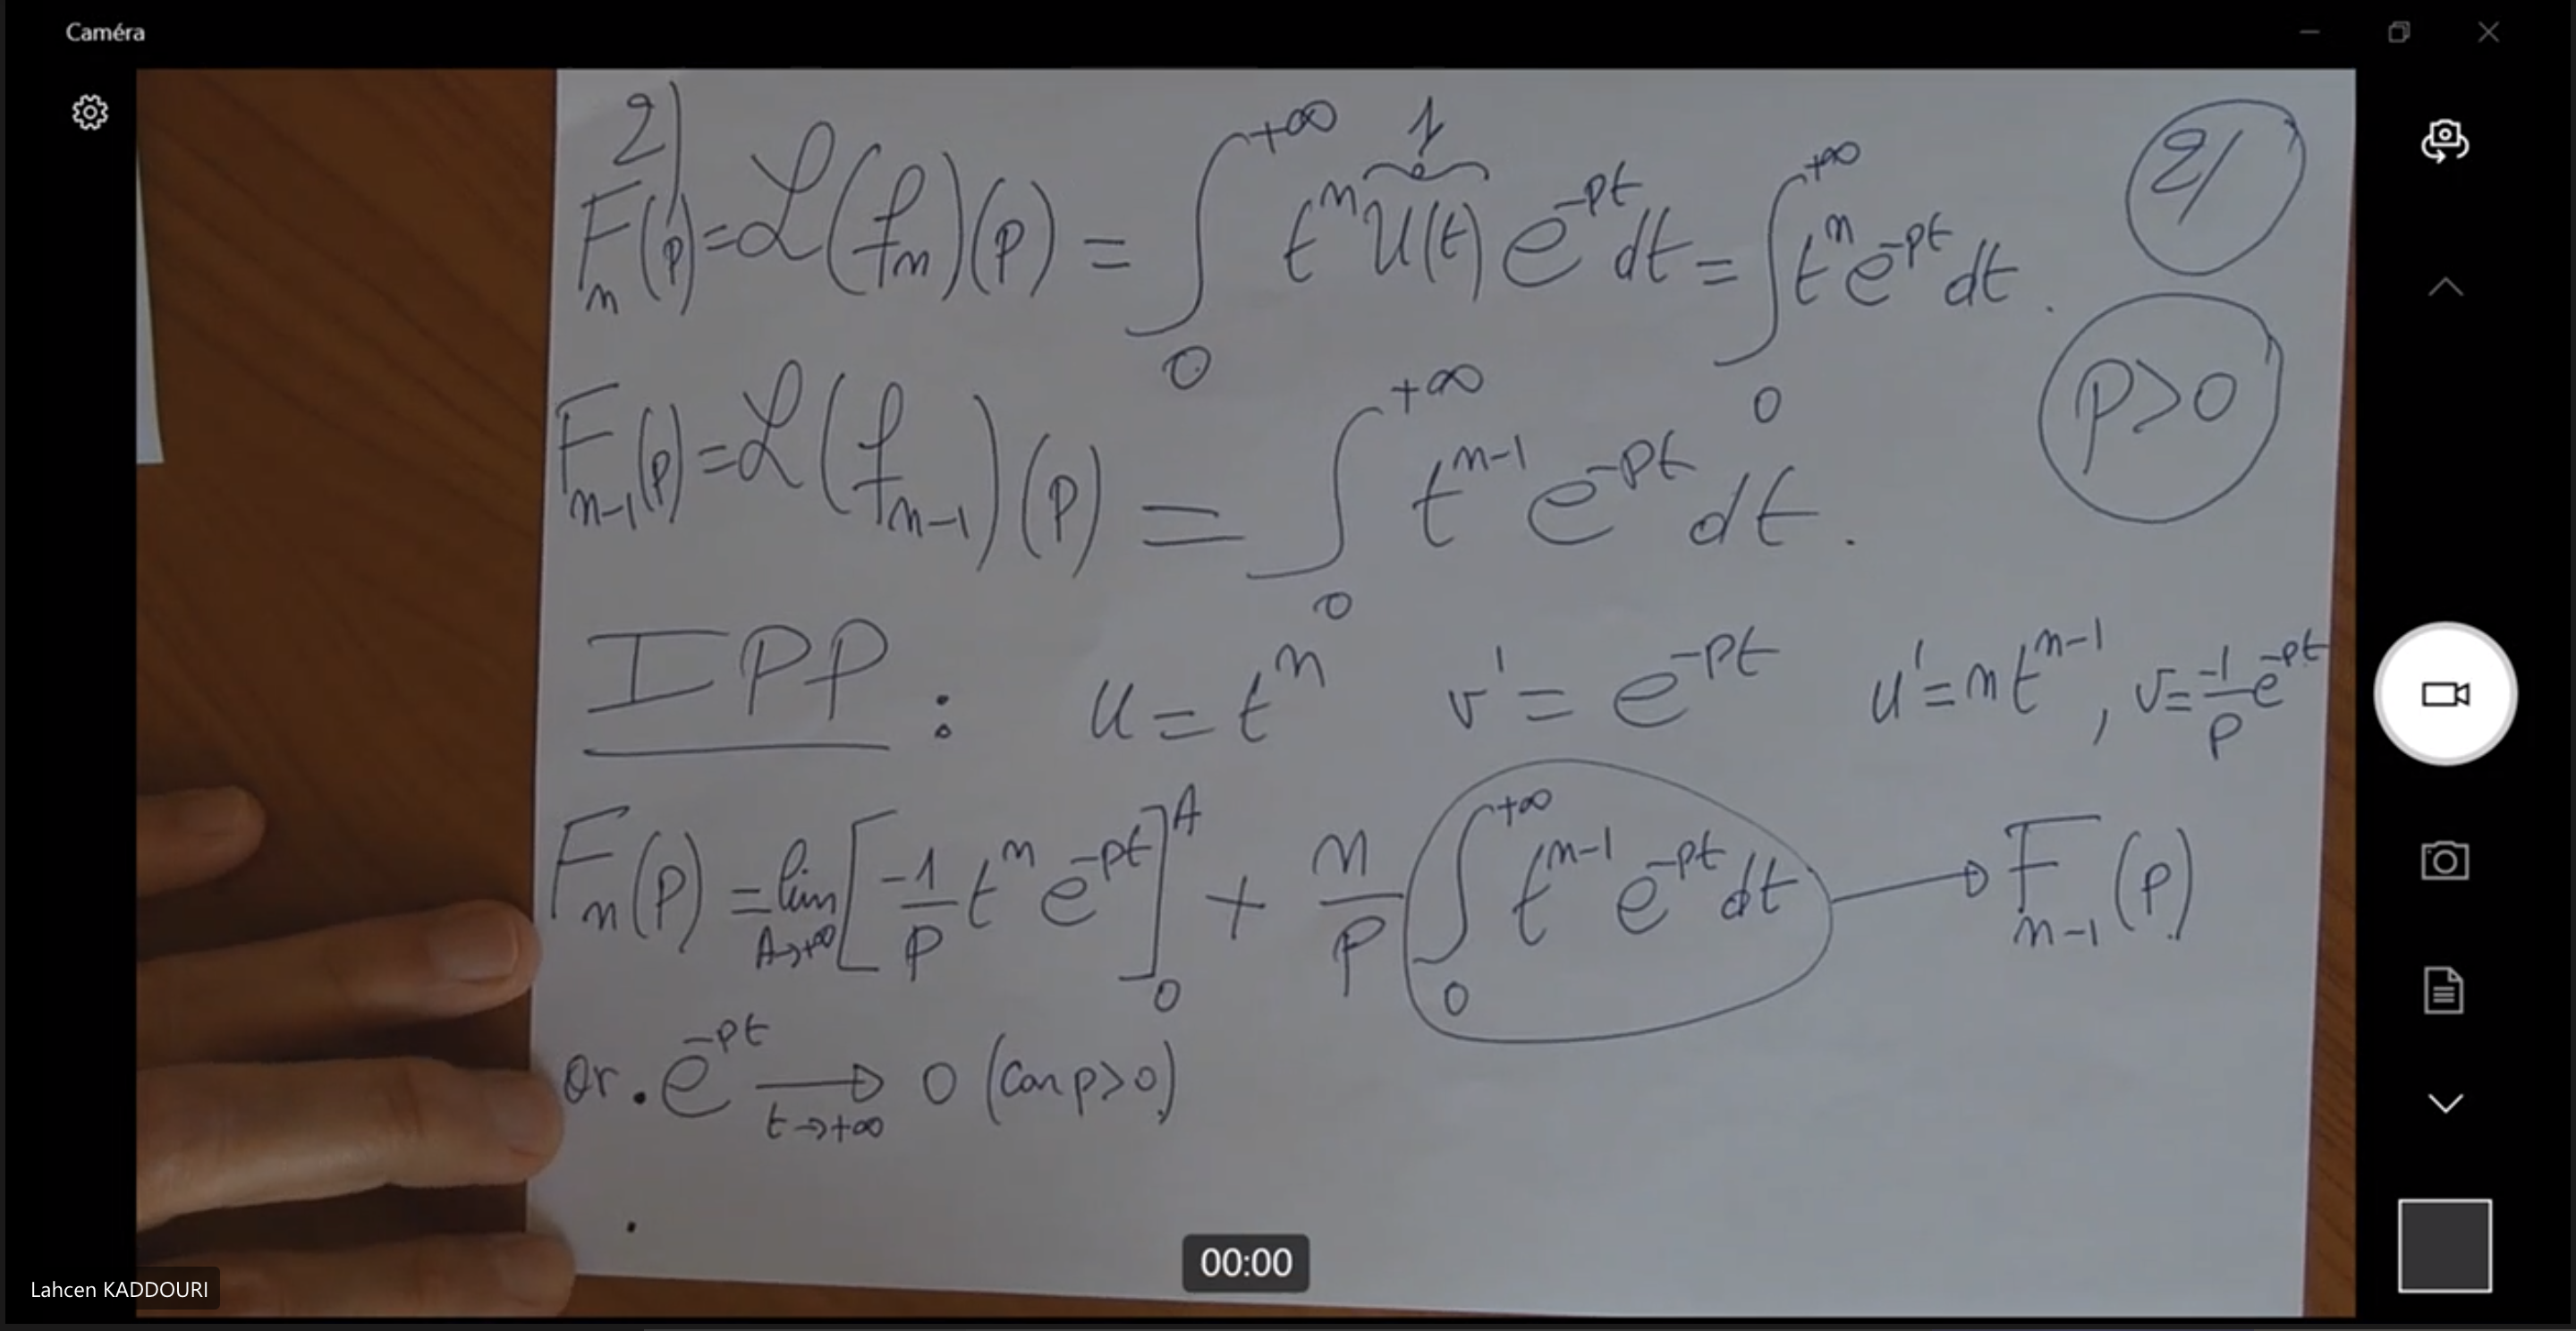 Caméra
2)
2/
F_n(p) = ℒ(f_n)(p) = ∫_0^{+∞} t^n U(t) e^{-pt} dt = ∫_0^{+∞} t^n e^{-pt} dt.
1
p>0
F_{n-1}(p) = ℒ(f_{n-1})(p) = ∫_0^{+∞} t^{n-1} e^{-pt} dt.
IPP : u = t^n v' = e^{-pt} u' = n t^{n-1}, v = -1/p e^{-pt}
F_n(p) = lim_{A→+∞} [-1/p t^n e^{-pt}]_0^A + n/p ∫_0^{+∞} t^{n-1} e^{-pt} dt → F_{n-1}(p)
or . e^{-pt} →_{t→+∞} 0 (car p>0)
.
00:00
Lahcen KADDOURI